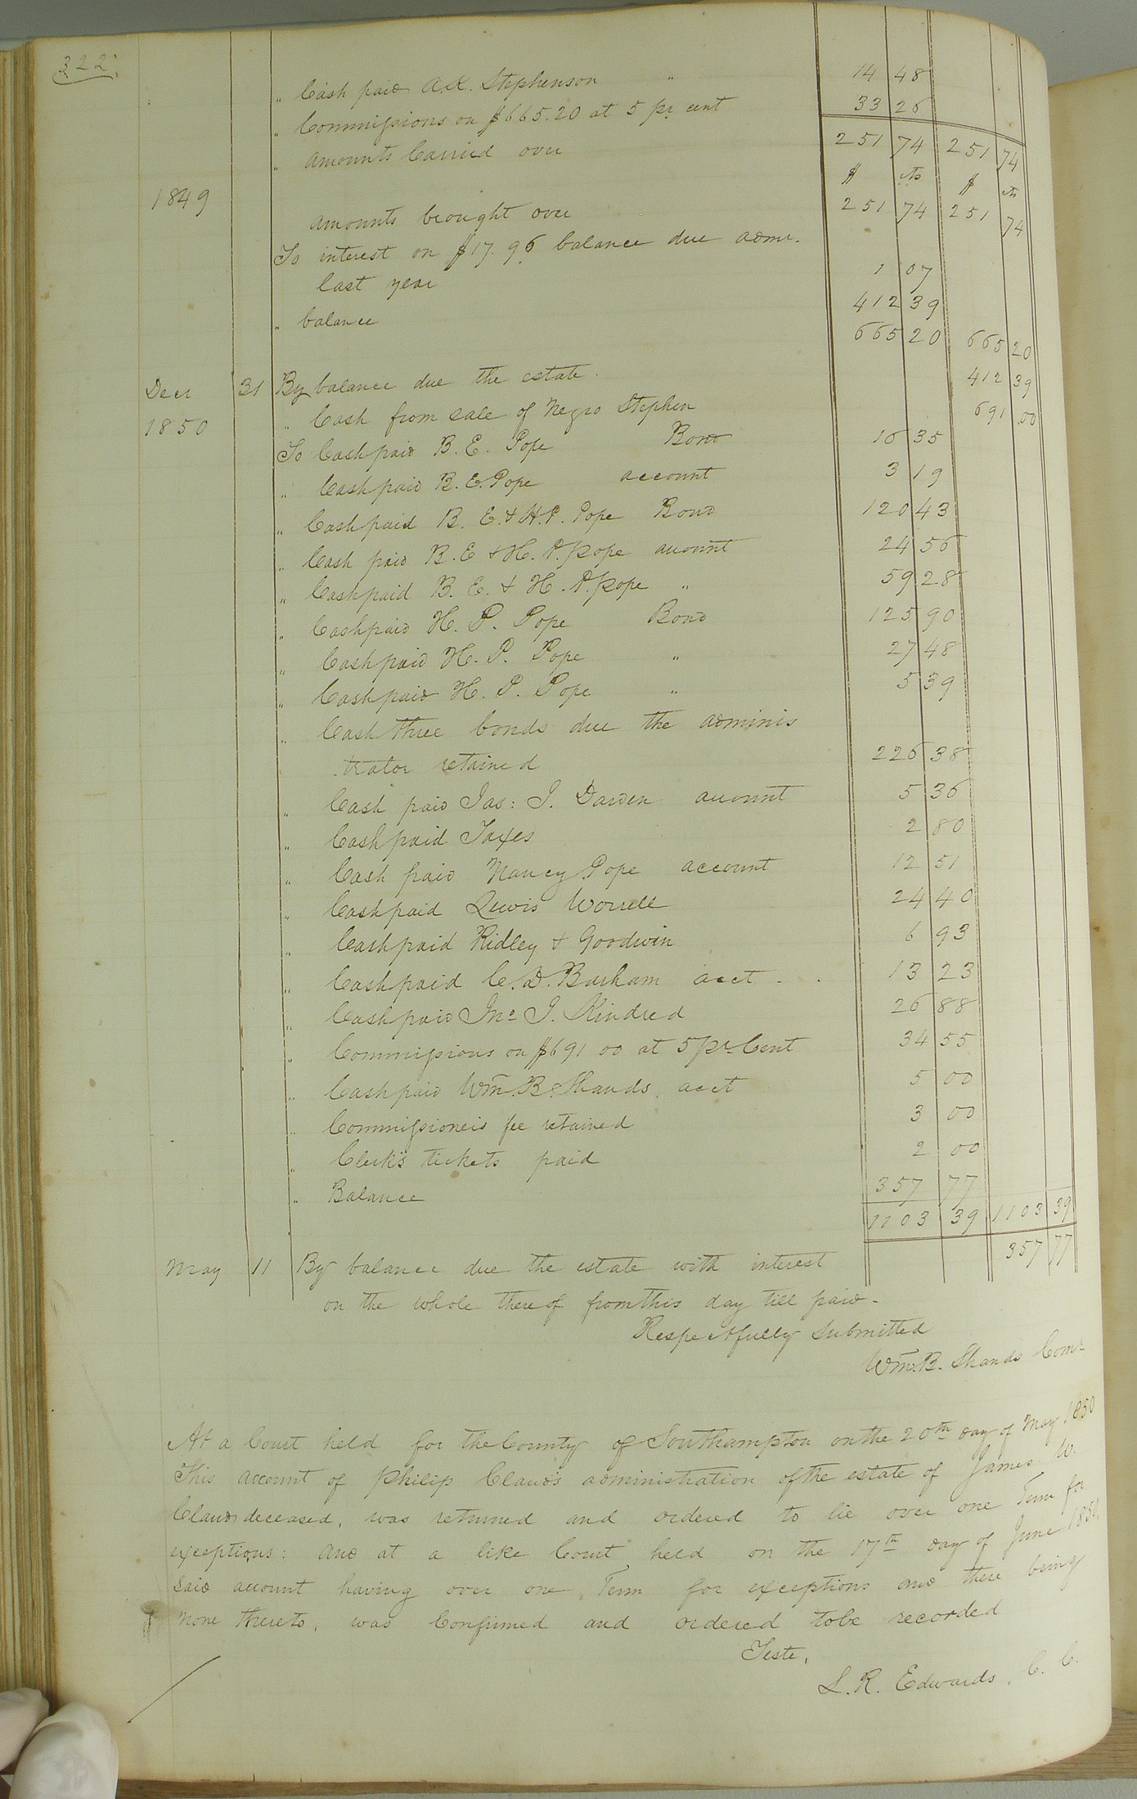 322
" Cash paid A.R. Stephenson " 14 48
" Commissions on $665.20 at 5 pr cent 33 26
" amounts Carried over 251 74 251 74
1849 $ cts $ cts
amounts brought over 251 74 251 74
To interest on $17.96 balance due admr.
last year 1 07
" balance 412 39
665 20 665 20
Decr 31 By balance due the estate. 412 39
1850 " Cash from sale of Negro Stephen 691 00
To Cash paid B. E. Pope Bond 16 35
" Cash paid B. E. Pope account 3 19
" Cash paid B. E. & H. P. Pope Bond 120 43
" Cash paid B. E & H. P. Pope account 24 56
" Cash paid B. E. & H. P. Pope " 59 28
" Cash paid H. P. Pope Bond 125 90
" Cash paid H. P. Pope " 27 48
" Cash paid H. P. Pope " 5 39
" Cash three bonds due the adminis
trator retained 226 38
" Cash paid Jas: J. Darden account 5 36
" Cash paid Taxes 2 80
" Cash paid Nancy Pope account 12 51
" Cash paid Lewis Worrell 24 40
" Cash paid Ridley & Goodwin 6 93
" Cash paid C. D. Barham acct . . 13 23
" Cash paid Jno. J. Kindred 26 88
" Commissions on $691 00 at 5 pr Cent 34 55
" Cash paid Wm. B. Shands acct 5 00
" Commissioneis fee retained 3 00
" Clerk's tickets paid 2 00
" Balance 357 77
1103 39 1103 39
May 11 By balance due the estate with interest 357 77
on the whole thereof from this day till paid.
Respectfully Submitted
Wm. B. Shands Comr
At a Court held for the County of Southampton on the 20th day of May 1850
This account of Philip Claud's administration of the estate of James W.
Claud deceased, was returned and ordered to lie over one Term for
exceptions: and at a like Court held on the 17th day of June 1850,
Said account having over one Term for exceptions and there being
none thereto, was Confirmed and ordered to be recorded
Teste,
L. R. Edwards, C. C.